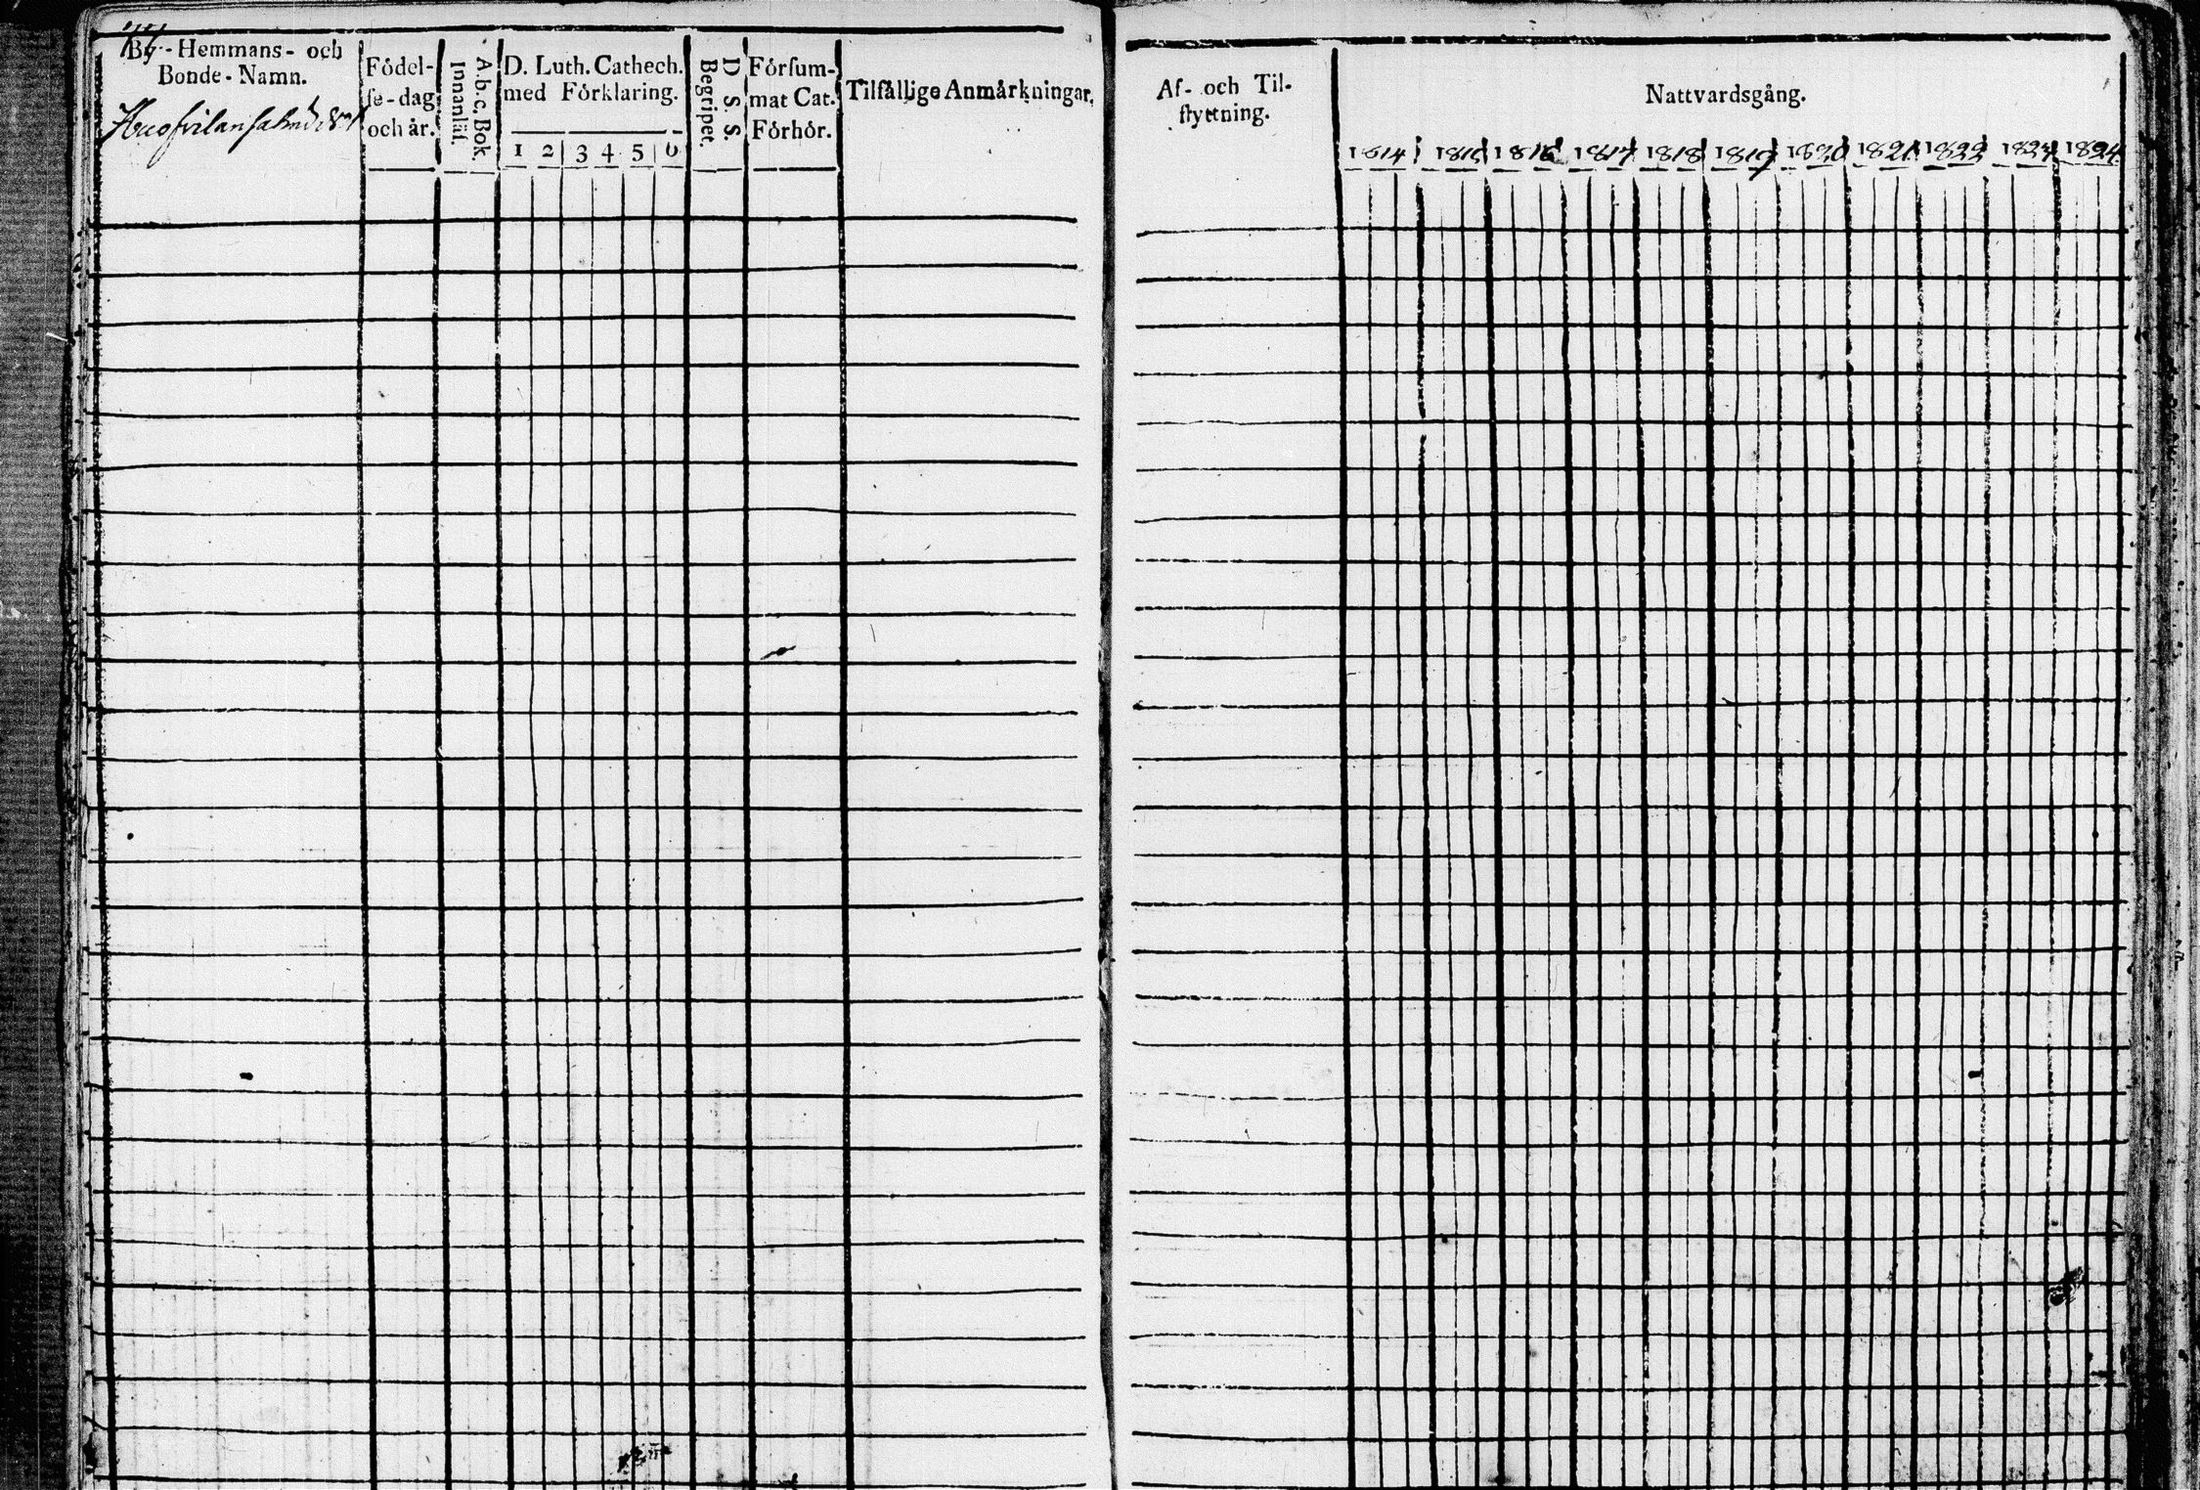 By - Hemmans - och
Bonde - Namn.
Födel-
se - dag
och år.
A.b.c. Bok.
Innanläs.
D. Luth. Cathech.
med Förklaring.
1 2 3 4 5 6
D. S. S.
Begripet.
Försum-
mat Cat.
Förhör.
Tilfällige Anmärkningar.
Af- och Til-
flyttning.
Nattvardsgång.
1814 1815 1816 1817 1818 1819 1820 1821 1822 1823 1824